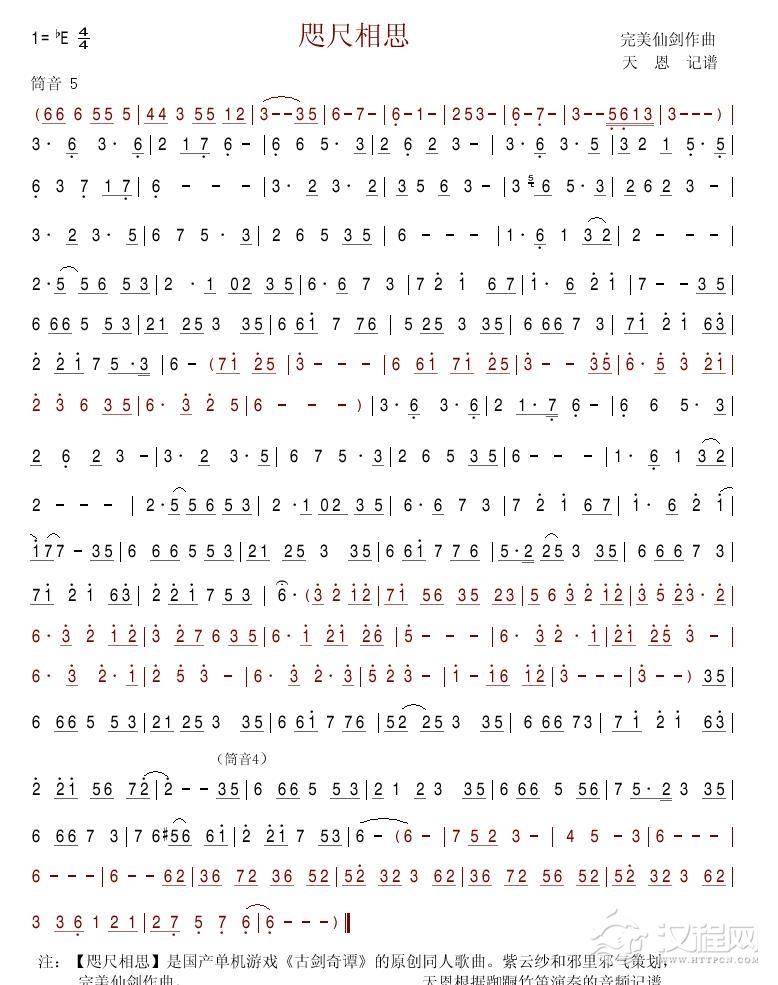 咫尺相思
1= ♭E 4/4
完美仙剑作曲
天 恩 记谱
筒音 5
(66 6 55 5|44 3 55 12|3--35|6-7-|6-1-|253-|6-7-|3--5613|3---)|
3· 6 3· 6|2 17 6-|6 6 5· 3|2 6 2 3-|3· 6 3· 5|3 2 1 5·5|
6 3 7 17|6 - - -|3· 2 3· 2|3 5 6 3-|3· 5 6 5· 3|2 6 2 3 -|
3· 2 3· 5|6 7 5· 3|2 6 5 35|6 - - -|1· 6 1 32|2 - - -|
2·5 56 53|2 ·1 02 35|6· 6 7 3|72 1 67|1· 6 21|7 - - 35|
6 66 5 53|21 25 3 35|6 61 7 76|5 25 3 35|6 66 7 3|71 2 1 63|
2 21 7 5·3|6 - (71 25|3 - - -|6 61 71 25|3 - - 35|6· 5 3 21|
2 3 6 35|6· 3 2 5|6 - - -)|3· 6 3· 6|2 1·7 6-|6 6 5· 3|
2 6 2 3 -|3· 2 3· 5|6 7 5· 3|2 6 5 35|6 - - -|1· 6 1 32|
2 - - -|2·5 56 53|2 ·1 02 35|6· 6 7 3|7 2 1 67|1· 6 21|
177 - 35|6 66 5 53|21 25 3 35|6 61 7 76|5·2 25 3 35|6 66 7 3|
71 2 1 63|2 21 7 53|6·(3 2 12|71 56 35 23|56 32 12|35 23 7|
6· 3 2 12|3 27 6 35|6· 1 21 26|5 - - -|6· 3 2· 1|21 25 3 -|
6· 3 2· 1|2 5 3 -|6· 3 2· 3|5 2 3 -|1 - 16 12|3 - - -|3 - - -) 35|
6 66 5 53|21 25 3 35|6 61 7 76|52 25 3 35|6 66 7 3|71 2 1 63|
（筒音4）
2 21 56 72|2 - - 35|6 66 5 53|21 23 35|6 66 5 56|75·2 3 35|
6 66 7 3|7 6#56 61|2 21 7 53|6 - (6 -|7 5 2 3 -|4 5 - 3|6 -
6 - - -|6 - - 62|36 72 36 62|36 72 36 52|52 32 3 62|
3 36 1 21|27 5 7 6|6 - - -)‖
注：【咫尺相思】是国产单机游戏《古剑奇谭》的原创同人歌曲。紫云纱和邪里邪气策划，
完美仙剑作曲。 天恩根据踟蹰竹笛演奏的音频记谱
汉程网